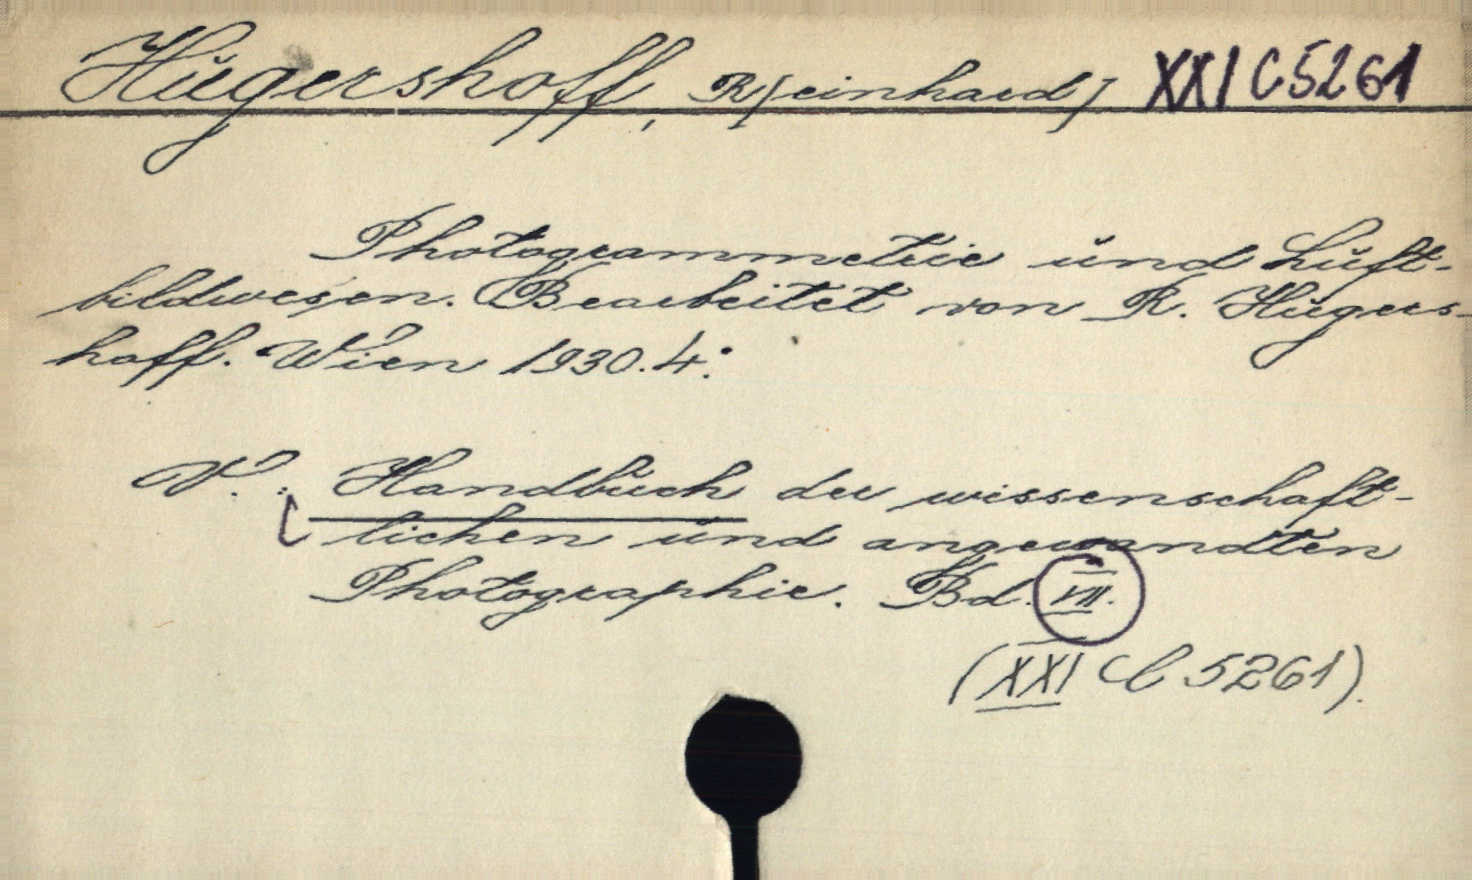 Hugershoff, R[einhard] XXI C 5261
Photogrammetrie und Luft-
bildwesen. Bearbeitet von R. Hugers-
hoff. Wien 1930. 4.°
V.: Handbuch der wissenschaft-
lichen und angewandten
Photographie. Bd. VII.
(XXI C 5261).